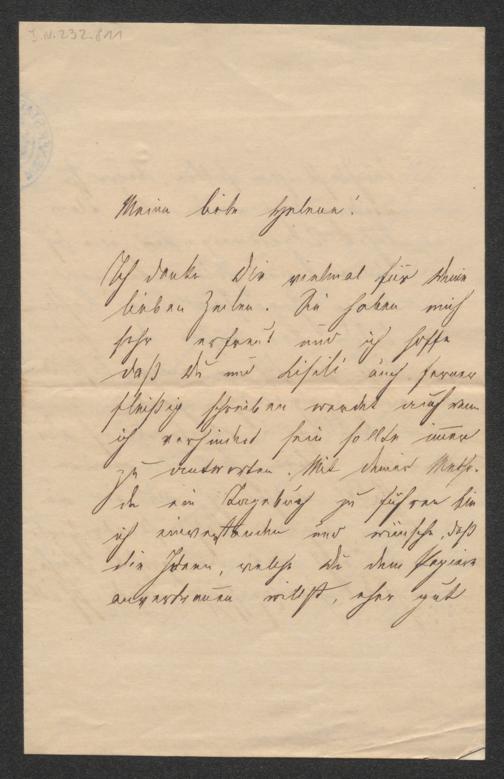 I.N. 232.811
Meine liebe Helene!
Ich danke Dir vielmal für Deine
lieben Zeilen. Sie haben mich
sehr erfreut und ich hoffe
daß Du und Lisili auch ferner
fleißig schreiben werdet auch wenn
ich verhindert sein sollte immer
zu antworten. Mit deiner Metho-
de ein Tagebuch zu führen bin
ich einverstanden und wünsche, daß
die Ideen, welche Du dem Papiere
anvertrauen willst, eher gut